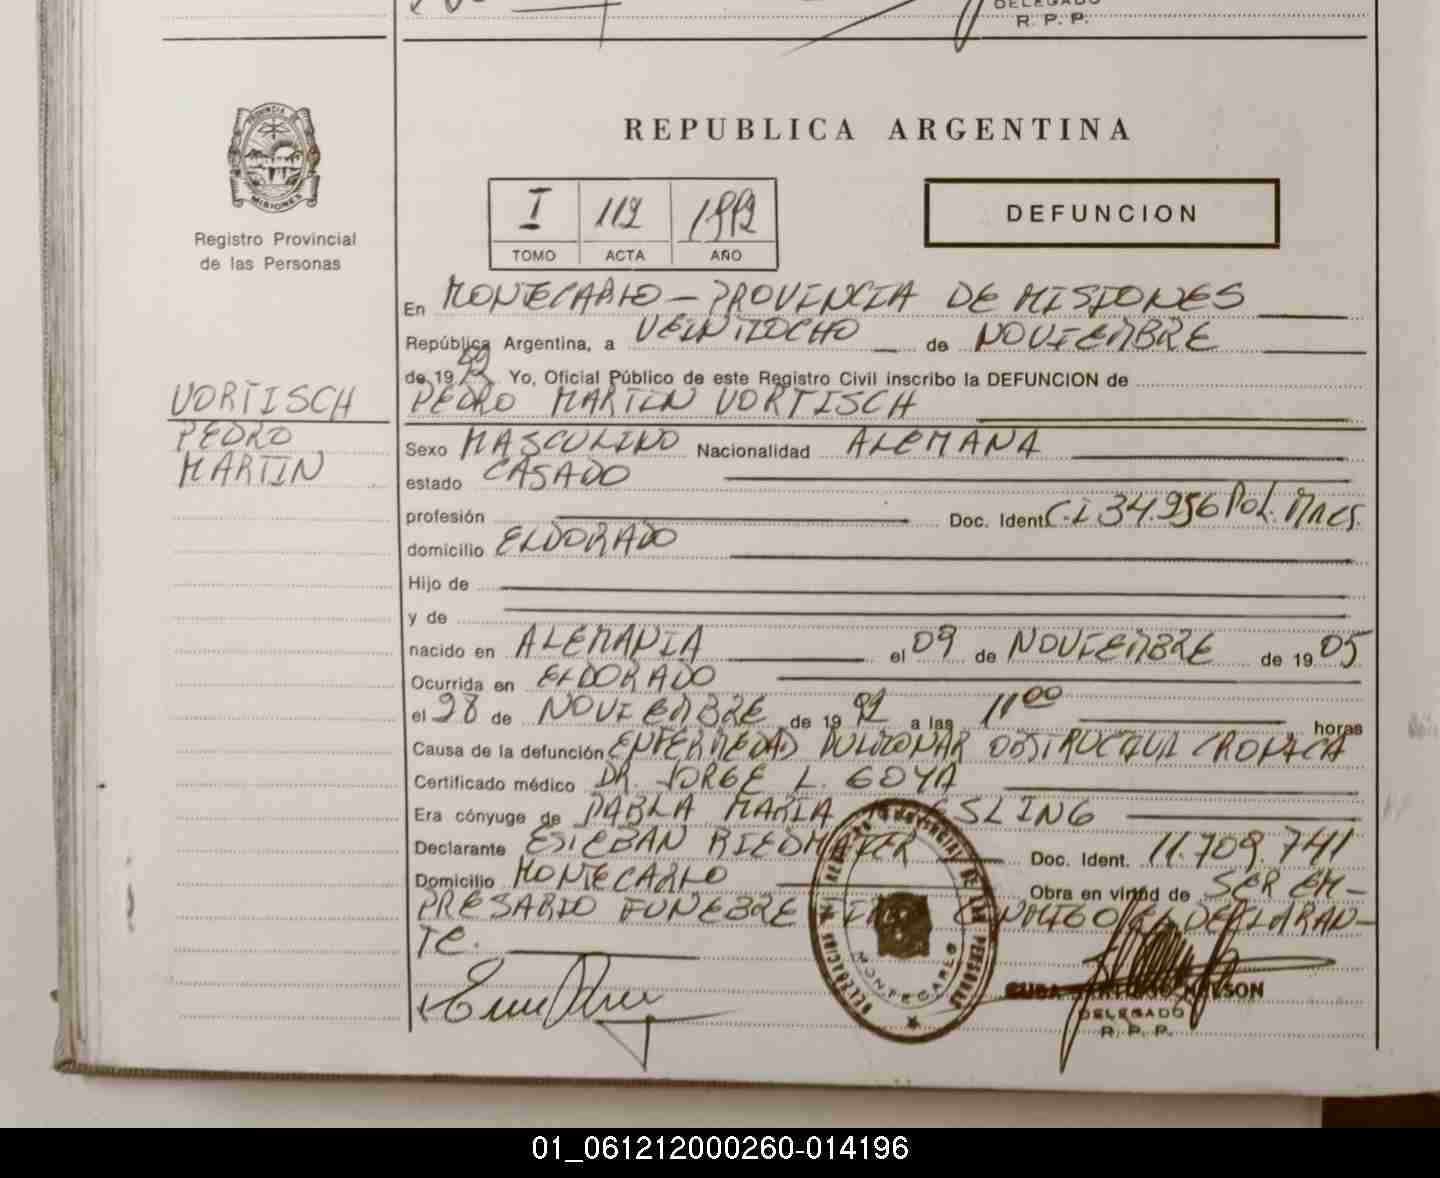 DELEGADO
R. P. P.
PROVINCIA DE
MISIONES
Registro Provincial
de las Personas
REPUBLICA ARGENTINA
I 112 1992
TOMO ACTA AÑO
DEFUNCION
En MONTECARLO - PROVINCIA DE MISIONES
República Argentina, a VEINTIOCHO de NOVIEMBRE
de 19 92 Yo, Oficial Público de este Registro Civil inscribo la DEFUNCION de
PEDRO MARTIN VORTISCH
VORTISCH
PEDRO
MARTIN
Sexo MASCULINO Nacionalidad ALEMANA
estado CASADO
profesión Doc. Ident. C.I 34.956 Pol. Mnes.
domicilio ELDORADO
Hijo de
y de
nacido en ALEMANIA el 09 de NOVIEMBRE de 19 05
Ocurrida en ELDORADO
el 28 de NOVIEMBRE de 19 92 a las 11 00 horas
Causa de la defunción ENFERMEDAD PULMONAR OBSTRUCTIVA CRONICA
Certificado médico DR. JORGE L. GOYA
Era cónyuge de MARIA
Declarante ESTEBAN RIEDMAIER Doc. Ident. 11.709.741
Domicilio MONTECARLO Obra en virtud de SER EM-
PRESARIO FUNEBRE FIRMA CONMIGO EL DECLARAN-
TE.
REGISTRO PROVINCIAL DE LAS PERSONAS
MONTECARLO
NELSON
DELEGADO
R. P. P.
01_061212000260-014196